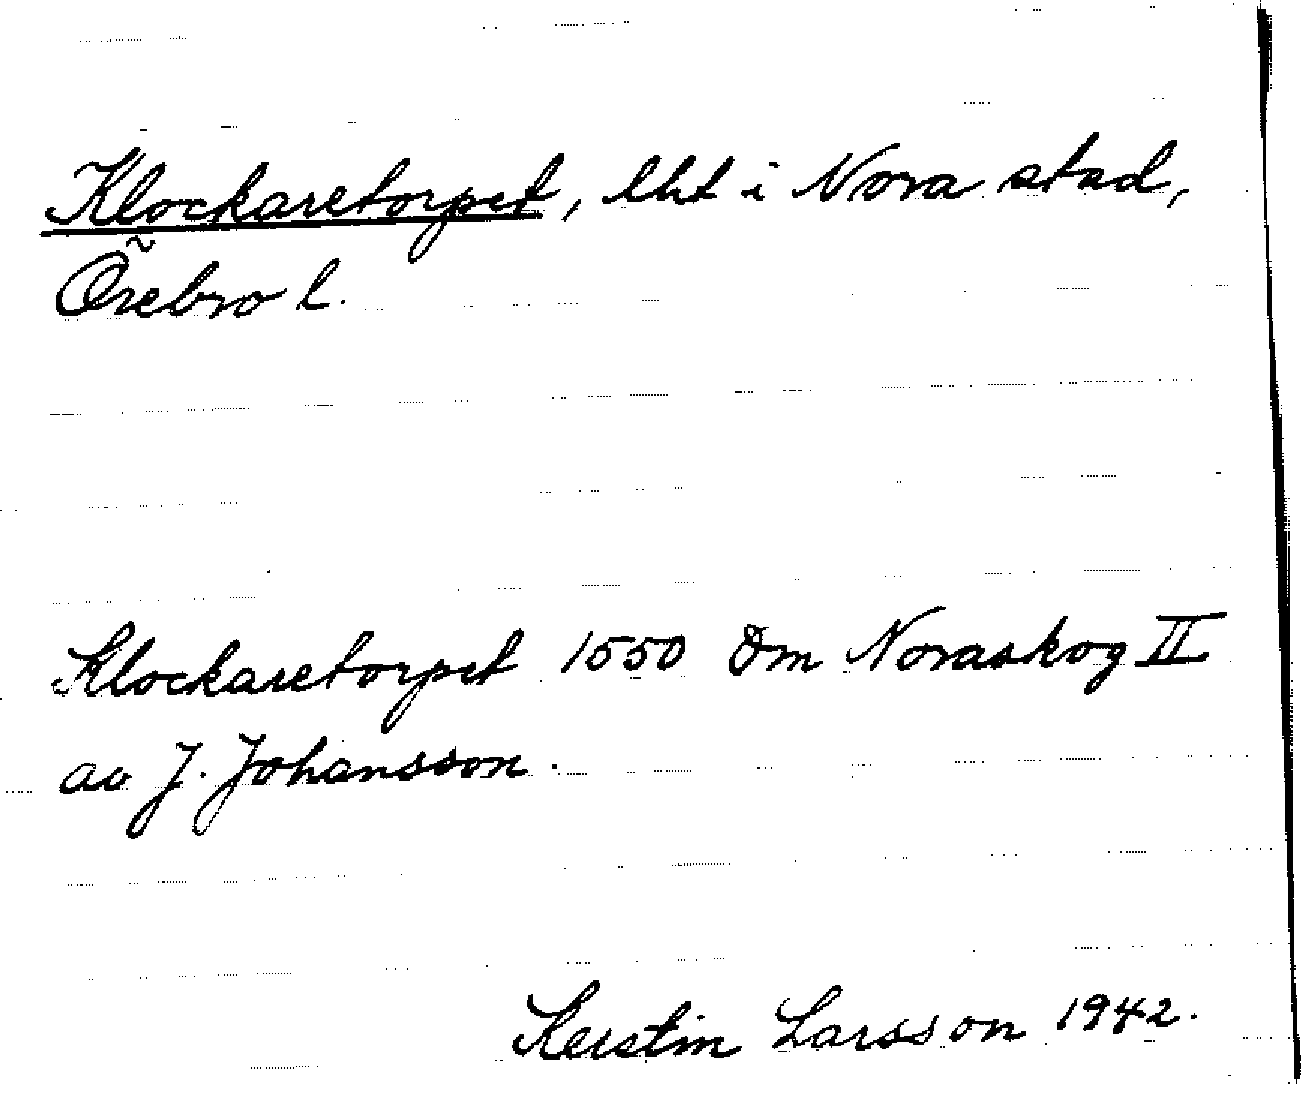 Klockaretorpet, lht i Nora stad,
Örebro l.
Klockaretorpet 1550 Om Noraskog II
av J. Johansson.
Kerstin Larsson 1942.